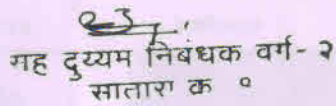 सह दुय्यम निबंधक वर्ग- २
सातारा क्र १